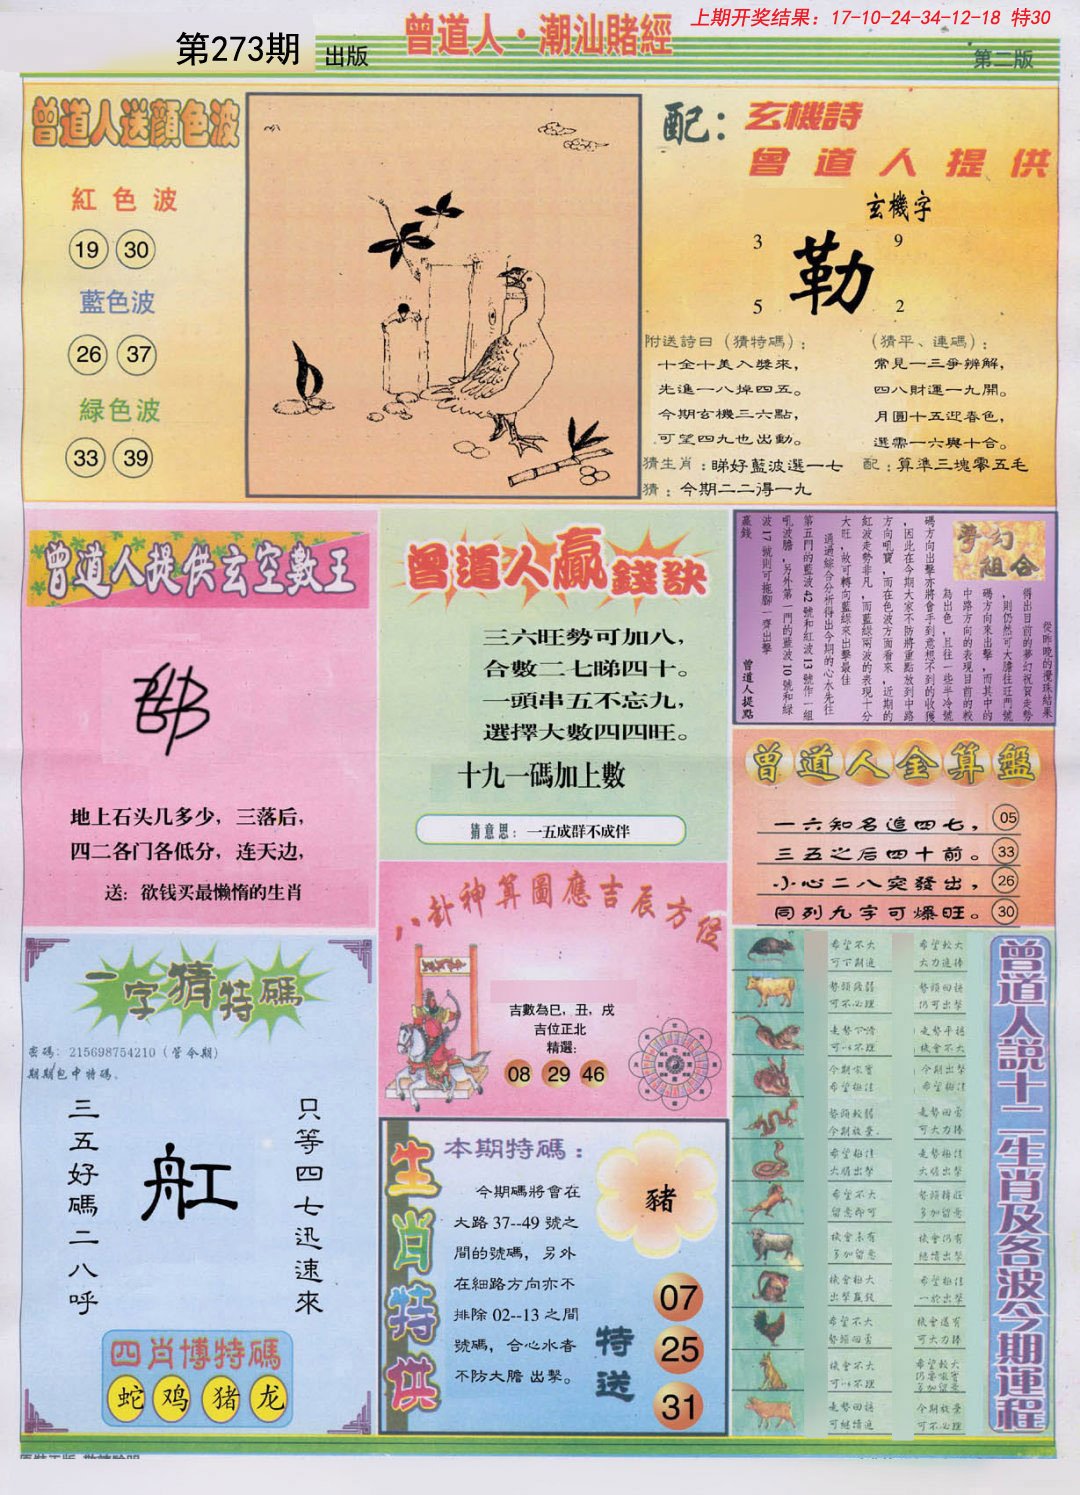 上期开奖结果：17-10-24-34-12-18 特30
第273期 出版
曾道人·潮汕賭經
第二版
曾道人送顔色波
紅色波
19 30
藍色波
26 37
緑色波
33 39
配：玄機詩
曾道人提供
玄機字
3 9
勒
5 2
附送詩日（猜特碼）：
十全十美入獎來，
先進一八掉四五。
今期玄機三六點，
可望四九也出動。
猜生肖：睇好藍波選一七
猜：今期二二得一九
（猜平、連碼）：
常見一三爭辨解，
四八財運一九開。
月圓十五迎春色，
選需一六與十合。
配：算準三塊零五毛
曾道人提供玄空數王
地上石头几多少，三落后，
四二各门各低分，连天边，
送：欲钱买最懒惰的生肖
曾道人贏錢訣
三六旺勢可加八，
合數二七睇四十。
一頭串五不忘九，
選擇大數四四旺。
十九一碼加上數
猜意思：一五成群不成伴
夢幻組合
從昨晚的攪珠結果
得出目前的夢幻祝賀走勢
，則仍然可大膽往旺門號
碼方向來出擊，而其中的
中路方向的表現目前的較
為出色，且往一些半冷號
碼方向出擊亦將會手到意想不到的收獲
，因此在今期大家不防將重點放到中路
方向吼寶，而在色波方面看來，近期的
紅波走勢非凡，而藍綠兩波的表現十分
大旺，故可轉向藍綠來出擊最佳
通過綜合分析得出今期的心水先往
第五門的藍波42號和紅波13號作一組
吼波膽，另外第一門的藍波10號和綠
波17號則可拖腳一齊出擊
贏錢
曾道人提點
曾道人金算盤
一六知名追四七， 05
三五之后四十前。 33
小心二八突發出， 26
同列九字可爆旺。 30
八卦神算圖應吉辰方位
吉數為巳，丑，戌
吉位正北
精選：
08 29 46
一字猜特碼
密碼：215698754210（管令期）
期期包中特碼。
三五好碼二八呼
舡
只等四七迅速來
四肖博特碼
蛇 鸡 猪 龙
生肖特供
本期特碼：
今期碼將會在
大路 37--49 號之
間的號碼，另外
在細路方向亦不
排除 02--13 之間
號碼，合心水者
不防大膽 出擊。
豬
特送
07
25
31
曾道人説十二生肖及各波今期運程
希望不大
可下期追
希望較大
大力追捧
勢頭疲弱
可不必理
勢頭回揚
仍可出擊
走勢下滑
可以不理
走勢平穩
機會不大
今期家寶
希望極佳
今期出擊
希望極佳
勢頭較弱
今期放棄
走勢回雪
可大力捧
希望極佳
大膽出擊
走勢極佳
大膽出擊
希望不大
留意即可
勢頭轉旺
多加留意
機會未有
多加留意
機會仍有
繼續出擊
機會極大
出擊贏錢
希望極佳
一於出擊
希望不大
勢頭回雪
機會還有
可大力捧
機會不大
可以不理
希望較大
仍要家寶
多加留意
走勢回穩
可繼續追
今期放棄
可不必理